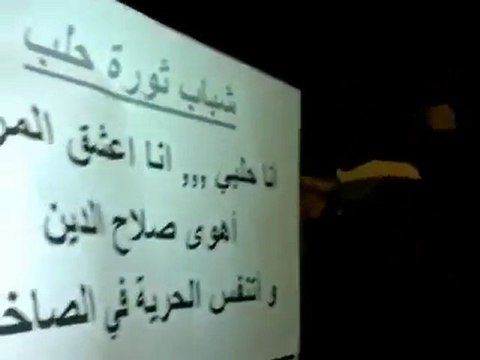 شباب ثورة حلب
انا حلبي ,,, انا اعشق
أهوى صلاح الدين
و اتنفس الحرية في